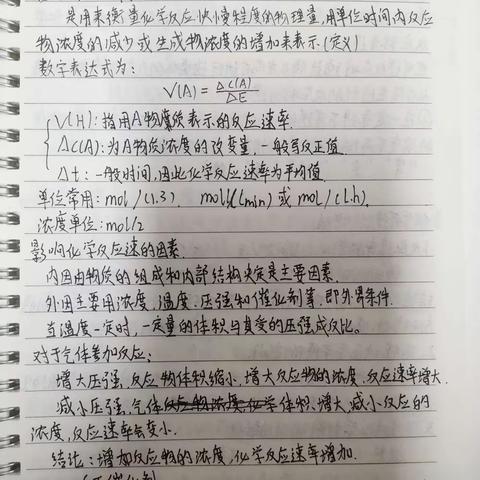 是用来衡量化学反应快慢程度的物理量,用单位时间内反应
物浓度的减少或生成物浓度的增加来表示(定义)
数字表达式为:
V(A)=Δc(A)/ΔE
V(H):指用A物质表示的反应速率
Δc(A):为A物质浓度的改变量,一般写反正值
Δt:一般时间,因此化学反应速率为平均值
单位常用:mol/(1.3). mol/(Lmin)或mol/(L.h).
浓度单位:mol/2
影响化学反应速的因素.
内因由物质的组成和内部结构决定是主要因素.
外因主要用浓度,温度.压强和催化剂等.即外界条件.
当温度一定时,一定量的体积与其受的压强成反比。
对于气体参加反应:
增大压强,反应物体积缩小,增大反应物的浓度.反应速率增大.
减小压强,气体体积增大,减小反应的
浓度,反应速率会变小.
结论:增加反应物的浓度,化学反应速率增加.